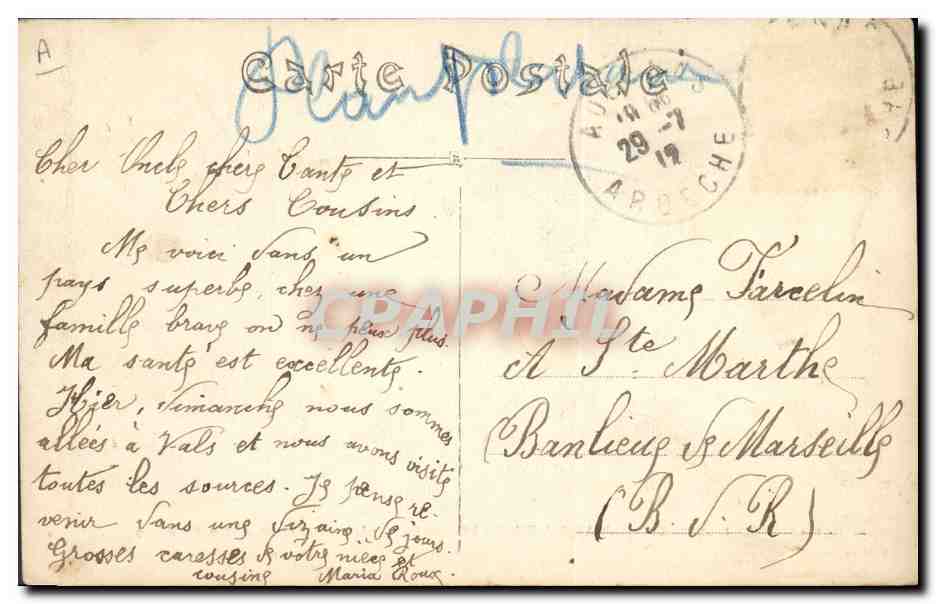 A
Carte Postale
29 -7
ARDECHE
Cher Oncle chère Tante et
Chers Cousins.
Me voici dans un
pays superbe, chez une
famille brave on ne peux plus.
Ma santé est excellente.
Hier, dimanche nous sommes
allées à Vals et nous avons visité
toutes les sources. Je pense re-
venir dans une dizaine de jours.
Grosses caresses de votre nièce et
cousine Maria Roux.
CPAPHIL
Madame Farcelin
A Ste Marthe
(Banlieue de Marseille
(B. d. R)